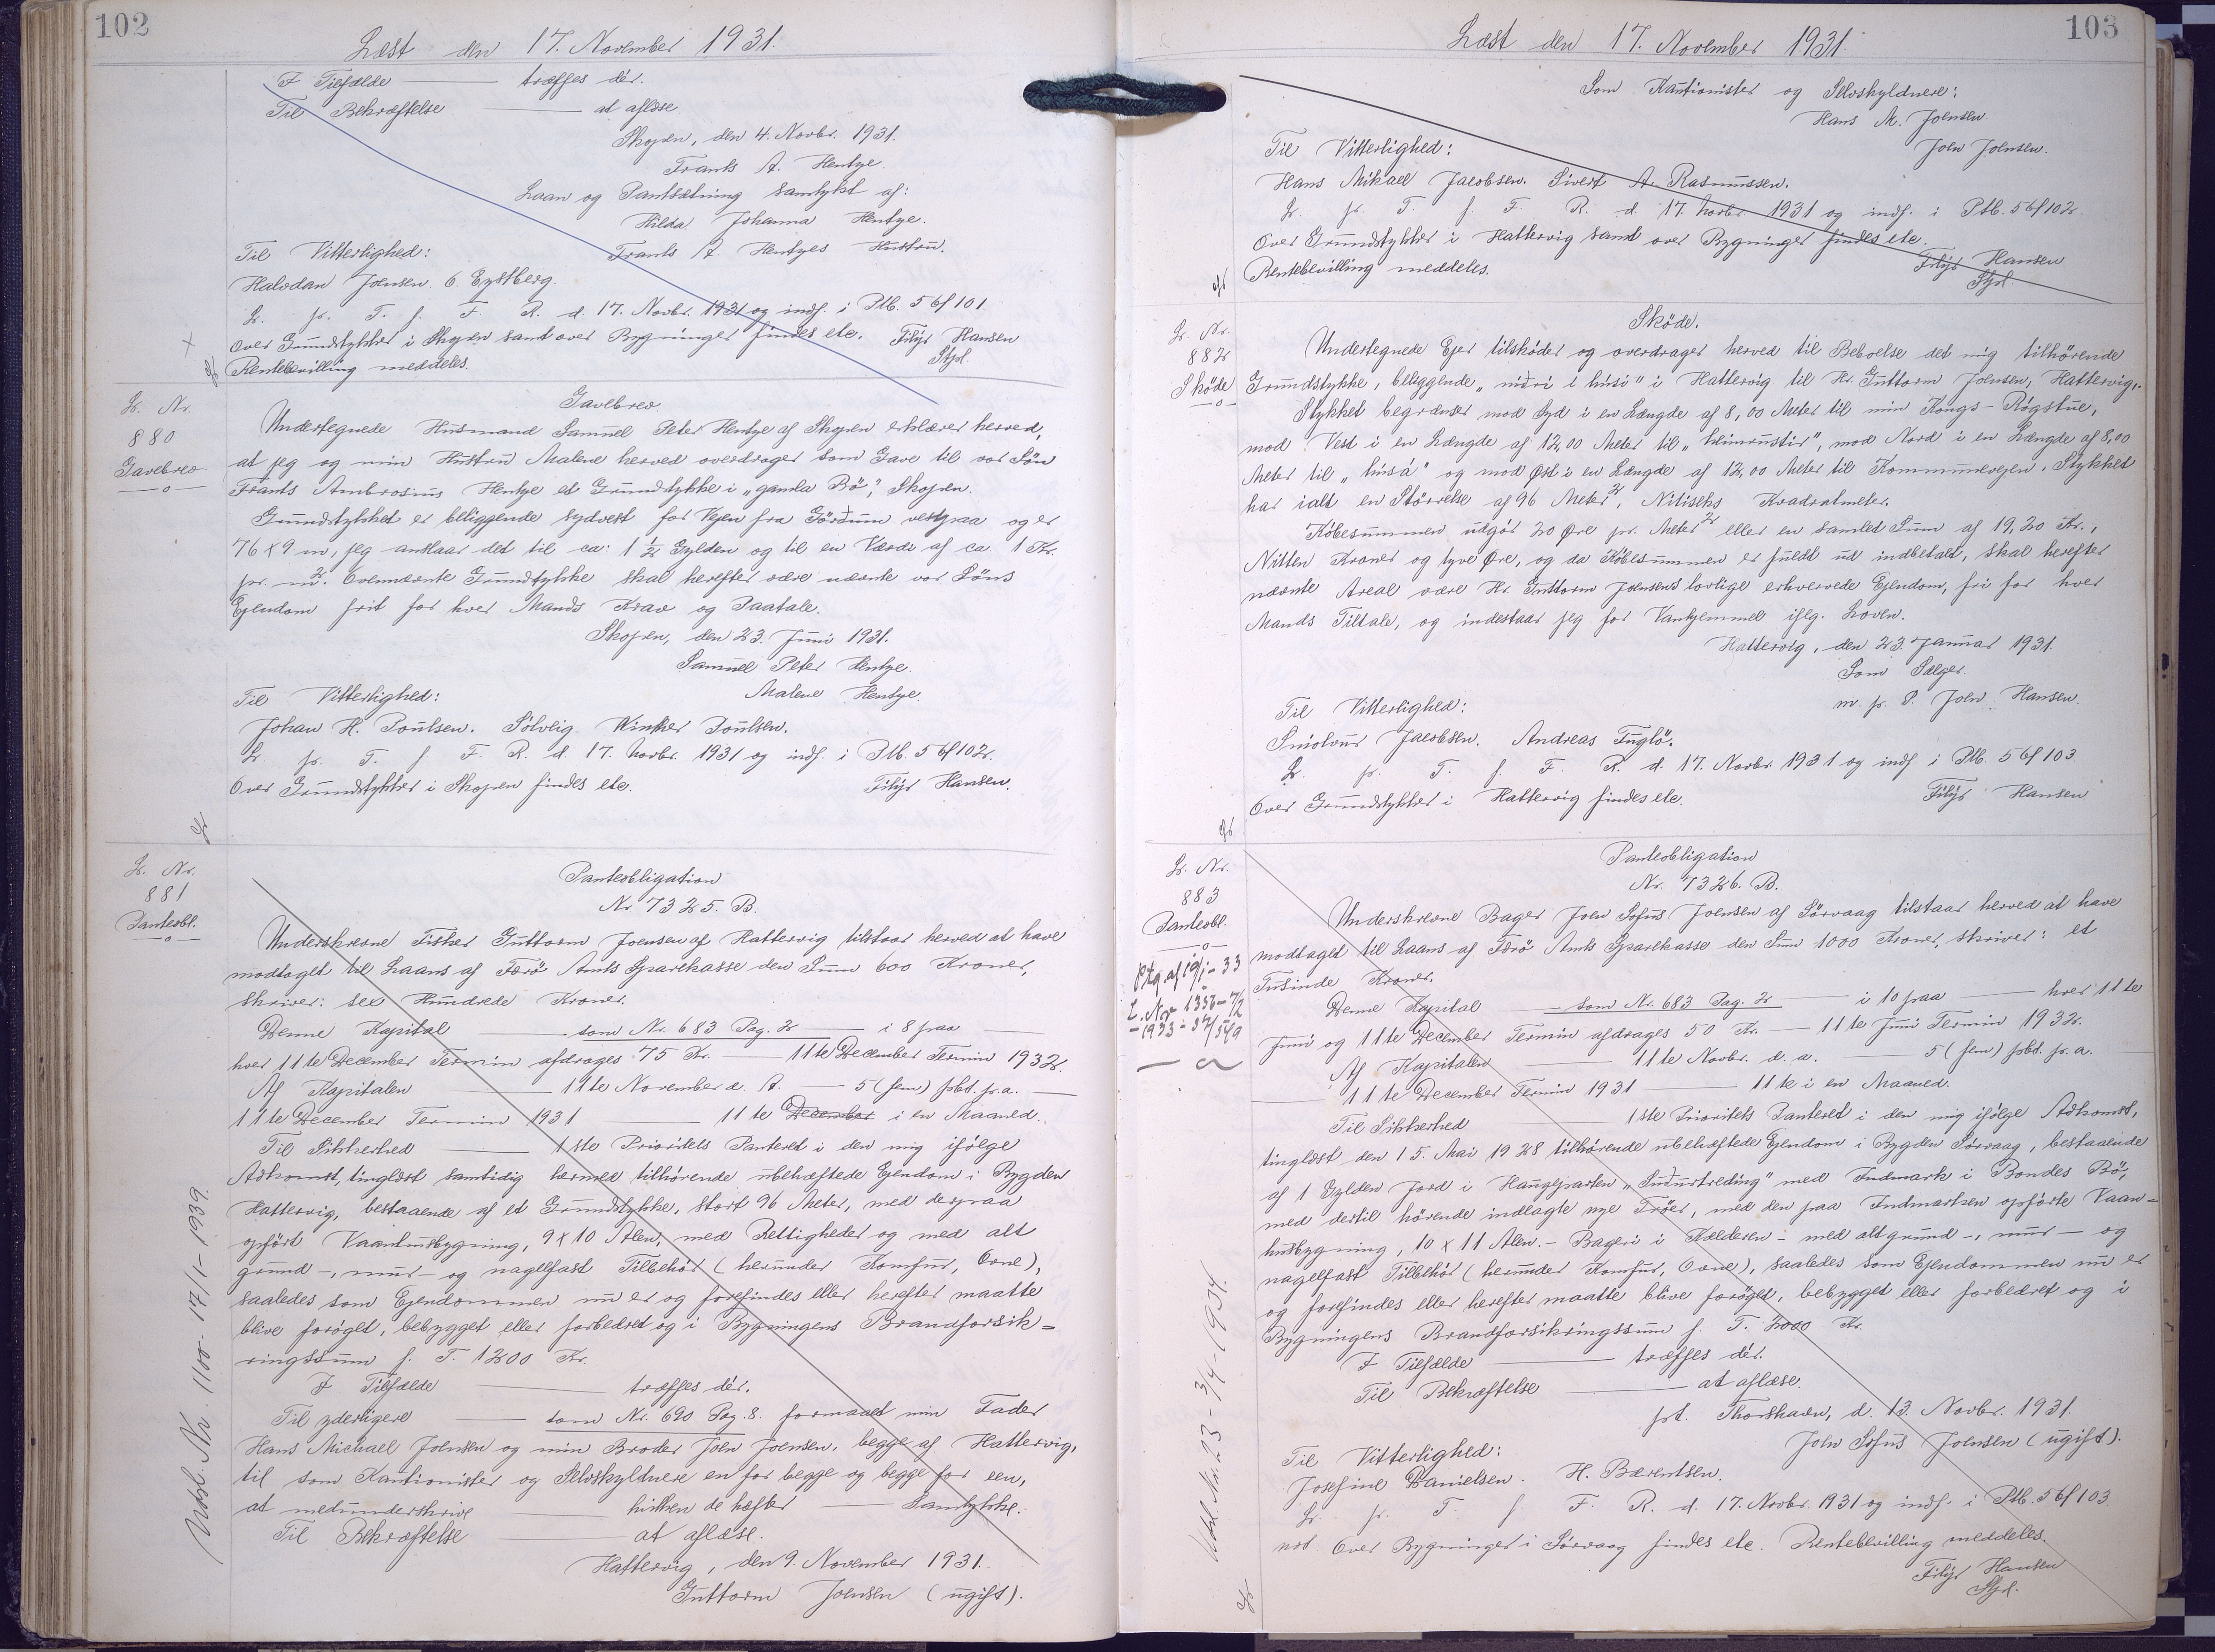 102
Læst den 17. November 1931.
I Tilfælde — træffes dér.
Til Bekræftelse — at aflæse
Skopen, den 4. Novbr. 1931.
Frants A. Hentze.
Laan og Pantsætning samtykt af:
Hilda Johanna Hentze.
Til Vitterlighed: Frants A. Hentzes Hustru.
Halvdan Joensen. O. Eystberg.
L. pr. T. f. F. R. d. 17. Novbr. 1931 og indf. i Ptb. 5 bf 101.
Over Grundstykket i Skopen samt over Bygninger findes ete. Filip Hansen
Rentebevilling meddeles. Stpd.
L. Nr.
880
Gavebrev
Gavebrev
Undertegnede Husmand Samuel Peter Hentze af Skopen erklærer herved,
at jeg og min Hustru Malene herved overdrager som Gave til vor Søn
Frants Ambrosius Hentze et Grundstykke i „gamla Bø", Skopen.
Grundstykket er beliggende sydvest for Vejen fra Gørðum vestpaa og er
76 x 9 m, jeg anslaar det til ca: 1 1/2 Gylden og til en Værdi af ca. 1 Kr.
pr. m2. Ovennævnte Grundstykke skal herefter være nævnte vor Søns
Ejendom frit for hver Mands Krav og Paatale.
Skopen, den 23. Juni 1931.
Samuel Peter Hentze.
Til Vitterlighed: Malene Hentze.
Johan H. Poulsen. Sólvlig Winther Poulsen.
L. pr. T. f. F. R. d. 17. Novbr. 1931 og indf. i Ptb. 5 bf 102.
Over Grundstykket i Skopen findes ete. Filip Hansen.
L. Nr.
881
Panteobl.
Panteobligation
Nr. 7325. B.
Underskrevne Fisker Guttorm Joensen af Hattervig tilstaar herved at have
modtaget til Laans af Færø Amts Sparekasse den Sum 600 Kroner,
skriver: sex Hundrede Kroner.
Denne Kapital — som Nr. 683 Pag. 2 — i 8 paa —
hver 11te December Termin afdrages 75 Kr. — 11te December Termin 1932.
Af Kapitalen — 11te November d. A. — 5 (fem) pCt. p.a. —
11te December Termin 1931 — 11te December i en Maaned.
Til Sikkerhed — 1ste Prioritets Panteret i den mig ifølge
Adkomst, tinglæst samtidig hermed tilhørende ubehæftede Ejendom i Bygden
Hattervig, bestaaende af et Grundstykke, stort 96 Meter, med derpaa
opført Vaanhusbygning, 9 x 10 Alen, med Rettigheder og med alt
grund-, mur- og nagelfast Tilbehør (herunder Komfur, Ovne),
saaledes som Ejendommen nu er og forefindes eller herefter maatte
blive forøget, bebygget eller forbedret og i Bygningens Brandforsik=
ringssum f. T. 1200 Kr.
I Tilfælde — træffes dér.
Til yderligere — som Nr. 690 Pag. 8. formaaet min Fader
Hans Michael Joensen og min Broder Joen Joensen, begge af Hattervig,
til som Kautionister og Selvskyldnere en for begge og begge for een,
at medunderskrive — hvilken de hæfter — Samtykke.
Til Bekræftelse — at aflæse.
Hattervig, den 9. November 1931.
Guttorm Joensen (ugift).
Udsl. Nr. 1100 - 17/1 - 1939.
103
Læst den 17. November 1931.
Som Kautionister og Selvskyldnere:
Hans M. Joensen.
Til Vitterlighed: Joen Joensen.
Hans Mikael Jacobsen. Sivert A. Rasmussen.
L. pr. T. f. F. R. d. 17. Novbr. 1931 og indf. i Ptb. 5 bf 102.
Over Grundstykket i Hattervig samt over Bygninger findes ete.
Rentebevilling meddeles. Filip Hansen
Stpd.
L. Nr.
882
Skøde
Skøde.
Undertegnede Ejer tilskøder og overdrager herved til Beboelse det mig tilhørende
Grundstykke, beliggende „niðri í húsi" i Hattervig til Hr. Guttorm Joensen, Hattervig.
Stykket begrænser mod Syd i en Længde af 8,00 Meter til min Kongs-Røgstue,
mod Vest i en Længde af 12,00 Meter til „heimrustir", mod Nord i en Længde af 8,00
Meter til „húsá" og mod Øst i en Længde af 12,00 Meter til Kommunevejen. Stykket
har ialt en Størrelse af 96 Meter2, Nitiseks Kvadratmeter.
Købesummen udgør 20 Øre pr. Meter2 eller en samlet Sum af 19,20 Kr.,
Nitten Kroner og tyve Øre, og da Købesummen er fuldt ud indbetalt, skal herefter
nævnte Areal være Hr. Guttorm Joensens lovlige erhvervede Ejendom, fri for hver
Mands Tiltale, og indestaar jeg for Vanhjemmel iflg. Loven.
Hattervig, den 23. Januar 1931.
Som Sælger.
Til Vitterlighed: m. p. P. Joen Hansen.
Smiolvur Jacobsen. Andreas Fuglø.
L. pr. T. f. F. R. d. 17. Novbr. 1931 og indf. i Ptb. 5 bf 103.
Over Grundstykket i Hattervig findes ete. Filip Hansen
L. Nr.
883
Panteobl.
Ptg. af 19/1 - 33
L. Nr 1336 - 7/2
- 1933 -
Panteobligation
Nr. 7326. B.
Underskrevne Bager Joen Sofus Joensen af Sørvaag tilstaar herved at have
modtaget til Laans af Færø Amts Sparekasse den Sum 1000 Kroner, skriver: et
Tusinde Kroner.
Denne Kapital — som Nr. 683 Pag. 2 — i 10 paa — hver 11te
Juni og 11te December Termin afdrages 50 Kr. — 11te Juni Termin 1932.
Af Kapitalen — 11te Novbr. d. a. — 5 (fem) pCt. p. a.
— 11te December Termin 1931 — 11te i en Maaned.
Til Sikkerhed — 1ste Prioritets Panteret i den mig ifølge Adkomst,
tinglæst den 15. Mai 1928 tilhørende ubehæftede Ejendom i Bygden Sørvaag, bestaaende
af 1 Gylden Jord i Haugeparten „Suðurtreding" med Indmark i Bondes Bø,
med dertil hørende indlagte nye Trøer, med den paa Indmarken opførte Vaan=
husbygning, 10 x 11 Alen. - Bageri i Kælderen - med alt grund-, mur- og
nagelfast Tilbehør (herunder Komfur, Ovne), saaledes som Ejendommen nu er
og forefindes eller herefter maatte blive forøget, bebygget eller forbedret og i
Bygningens Brandforsikringssum f. T. 2000 Kr.
I Tilfælde — træffes dér.
Til Bekræftelse — at aflæse.
pt. Thorshavn, d. 13. Novbr. 1931.
Til Vitterlighed: Joen Sofus Joensen (ugift).
Josefine Danielsen. H. Bærentsen.
L. pr. T. f. F. R. d. 17. Novbr. 1931 og indf. i Ptb. 5 bf 103.
Over Bygninger i Sørvaag findes ete. Rentebevilling meddeles.
Filip Hansen
Stpd.
Udsl. Nr. 23 - 3/4 - 1934.